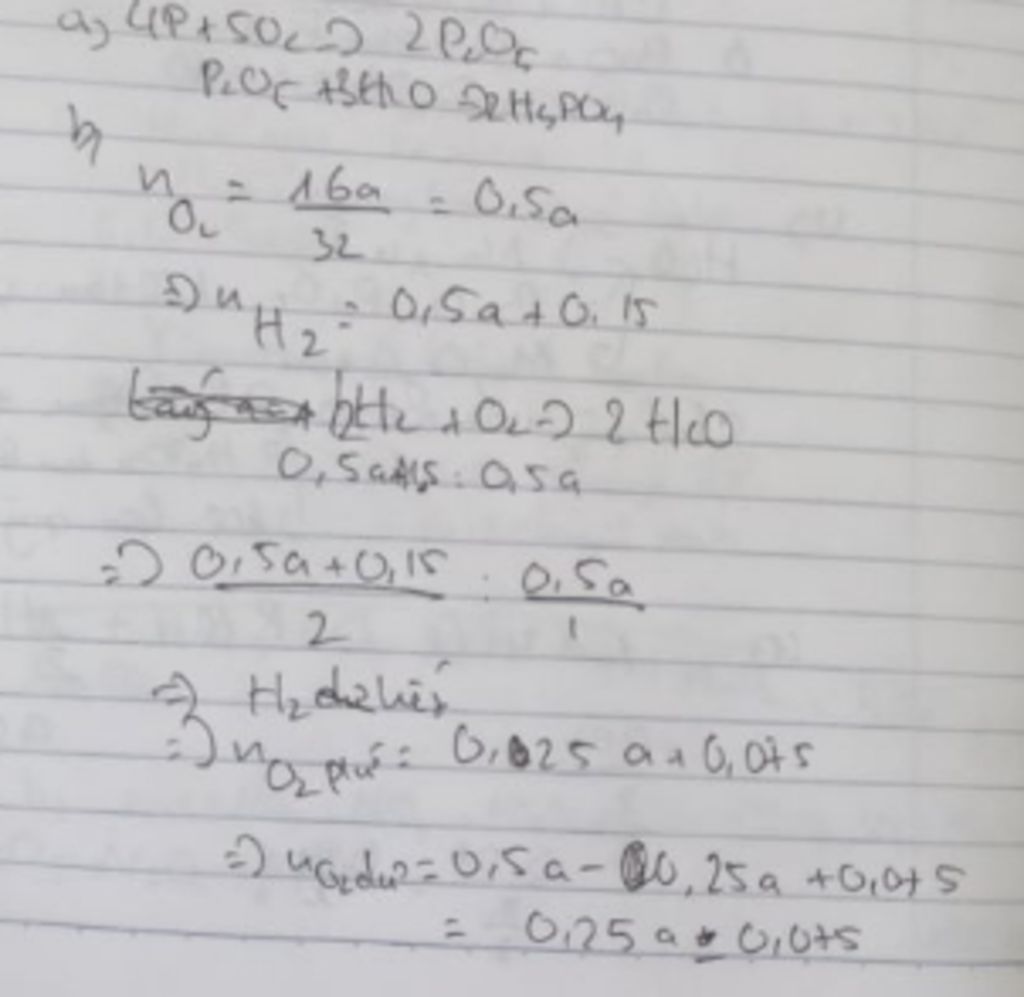 a, 4P + 5O₂ => 2P₂O₅
P₂O₅ + 3H₂O => 2H₃PO₄
b,
n O₂ = 16a/32 = 0,5a
=> n H₂ = 0,5a + 0,15
2H₂ + O₂ => 2H₂O
0,5a+0,15 : 0,5a
=> (0,5a + 0,15)/2 : 0,5a/1
=> H₂
=> n O₂ pứ = 0,25a + 0,075
=> n O₂ dư = 0,5a - 0,25a + 0,075
= 0,25a - 0,075